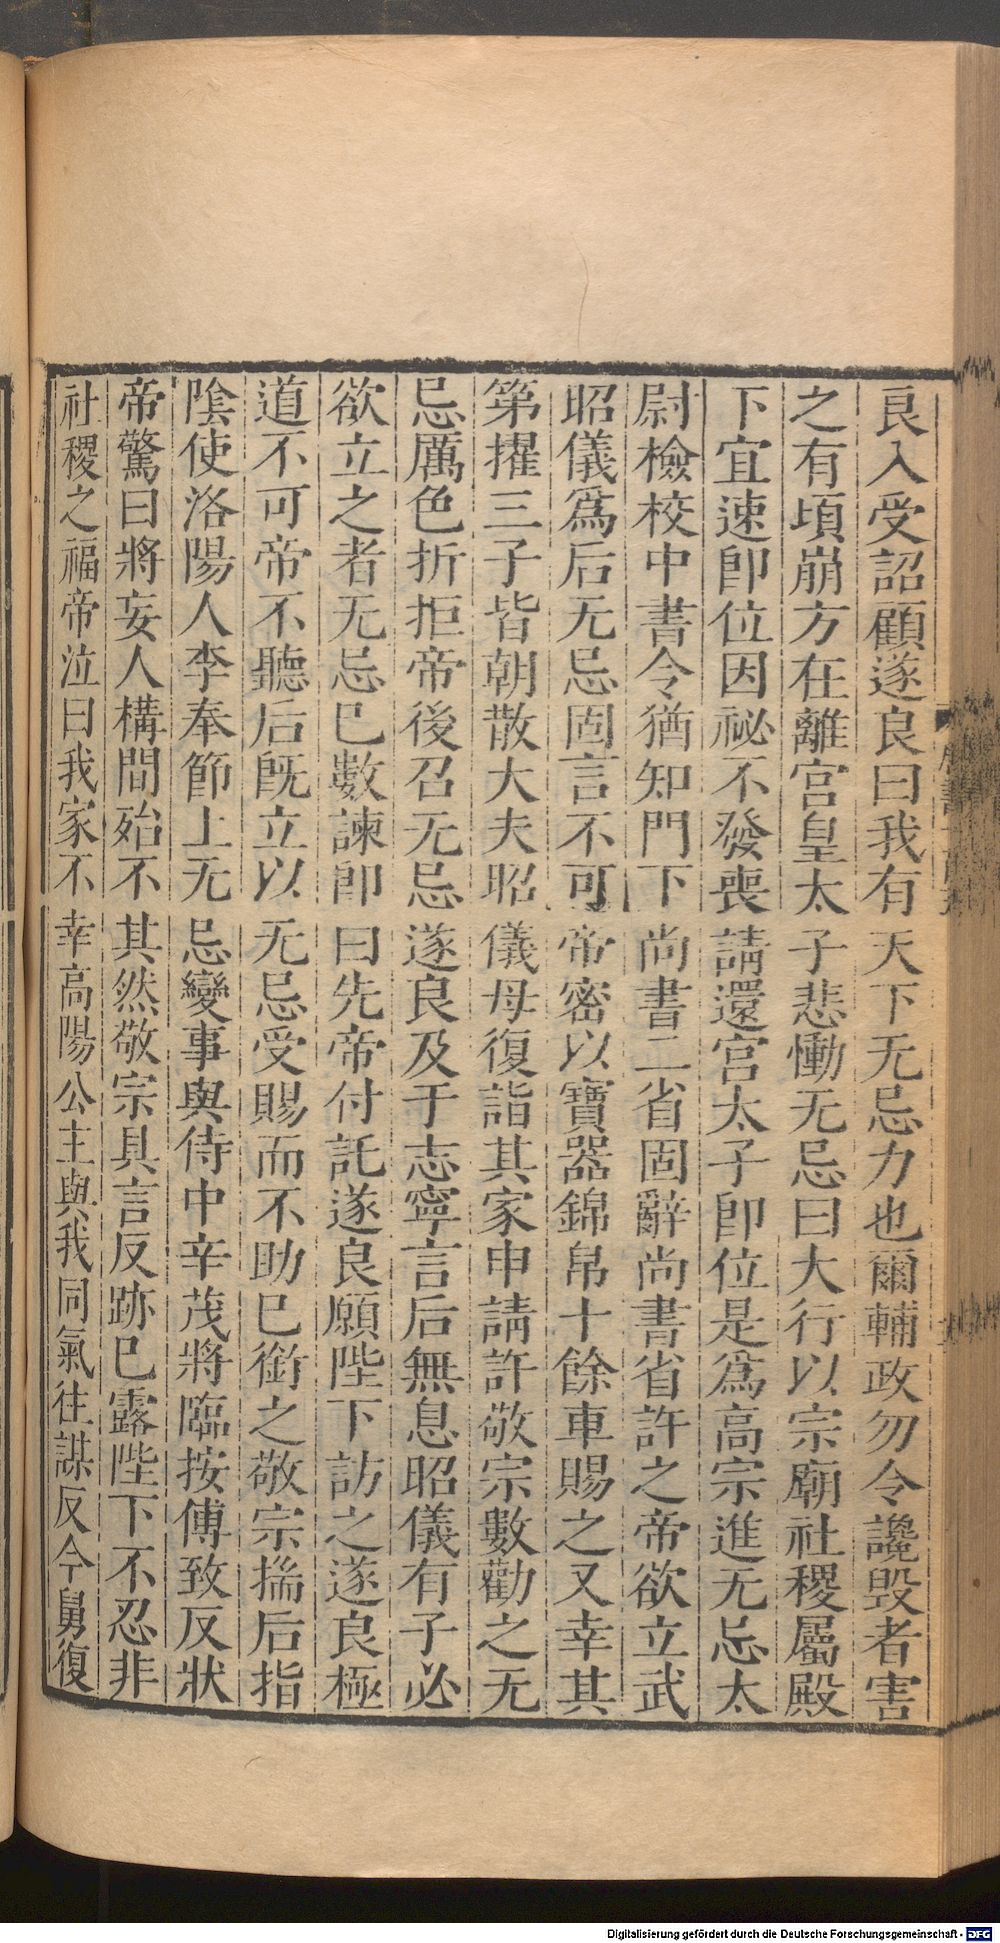 良入受詔顧遂良曰我有天下无忌力也爾輔政勿令讒毀者害
之有頃崩方在離宮皇太子悲慟无忌曰大行以宗廟社稷屬殿
下宜速卽位因祕不發喪請還宮太子卽位是爲高宗進无忌太
尉檢校中書令猶知門下尚書二省固辭尚書省許之帝欲立武
昭儀爲后无忌固言不可帝密以寶器錦帛十餘車賜之又幸其
第擢三子皆朝散大夫昭儀母復詣其家申請許敬宗數勸之无
忌厲色折拒帝後召无忌遂良及于志寧言后無息昭儀有子必
欲立之者无忌已數諫卽曰先帝付託遂良願陛下訪之遂良極
道不可帝不聽后旣立以无忌受賜而不助已銜之敬宗揣后指
陰使洛陽人李奉節上无忌變事與侍中辛茂將臨按傅致反狀
帝驚曰將妄人構間殆不其然敬宗具言反跡已露陛下不忍非
社稷之福帝泣曰我家不幸高陽公主與我同氣往謀反今舅復
Digitalisierung gefördert durch die Deutsche Forschungsgemeinschaft - DFG